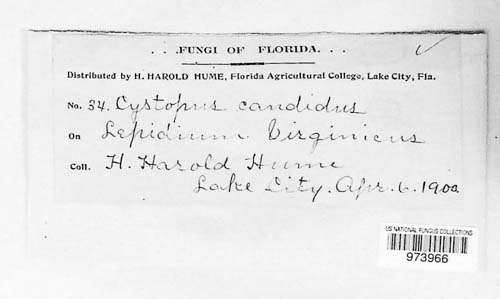 . . .FUNGI OF FLORIDA. . .
Distributed by H. HAROLD HUME, Florida Agricultural College, Lake City, Fla.
No. 34. Cystopus candidus
On Lepidium Virginicus
Coll. H. Harold Hume
Lake City. Apr. 6. 1900
US NATIONAL FUNGUS COLLECTIONS
973966